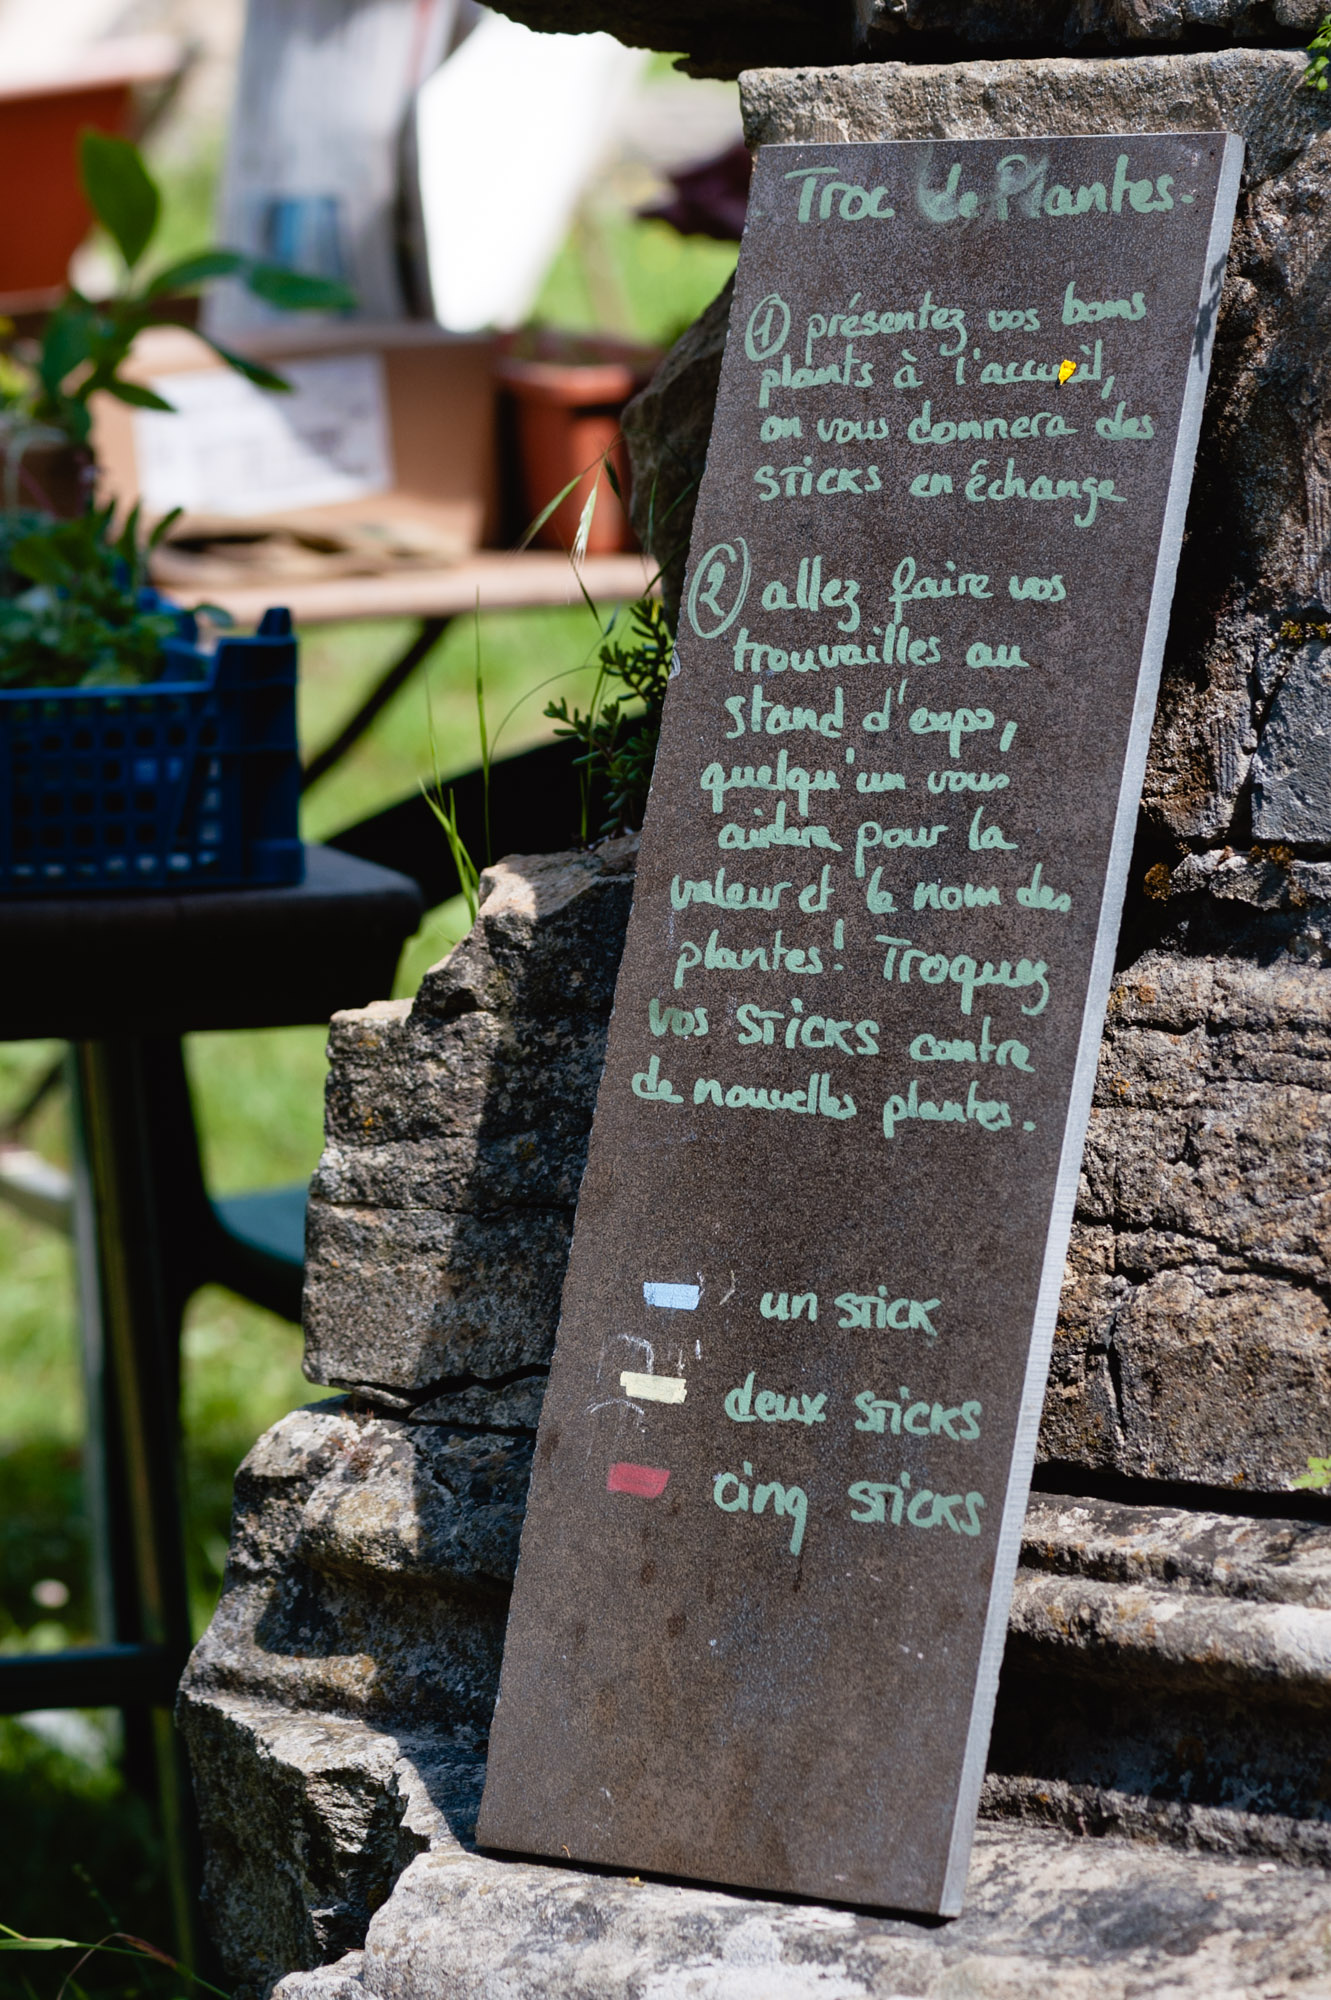 Troc de Plantes.
① présentez vos bons
plants à l'accueil,
on vous donnera des
STICKS en échange
② allez faire vos
trouvailles au
stand d'expo,
quelqu'un vous
aidera pour la
valeur et le nom des
plantes! Troquez
vos STICKS contre
de nouvelles plantes.
un STICK
deux STICKS
cinq STICKS